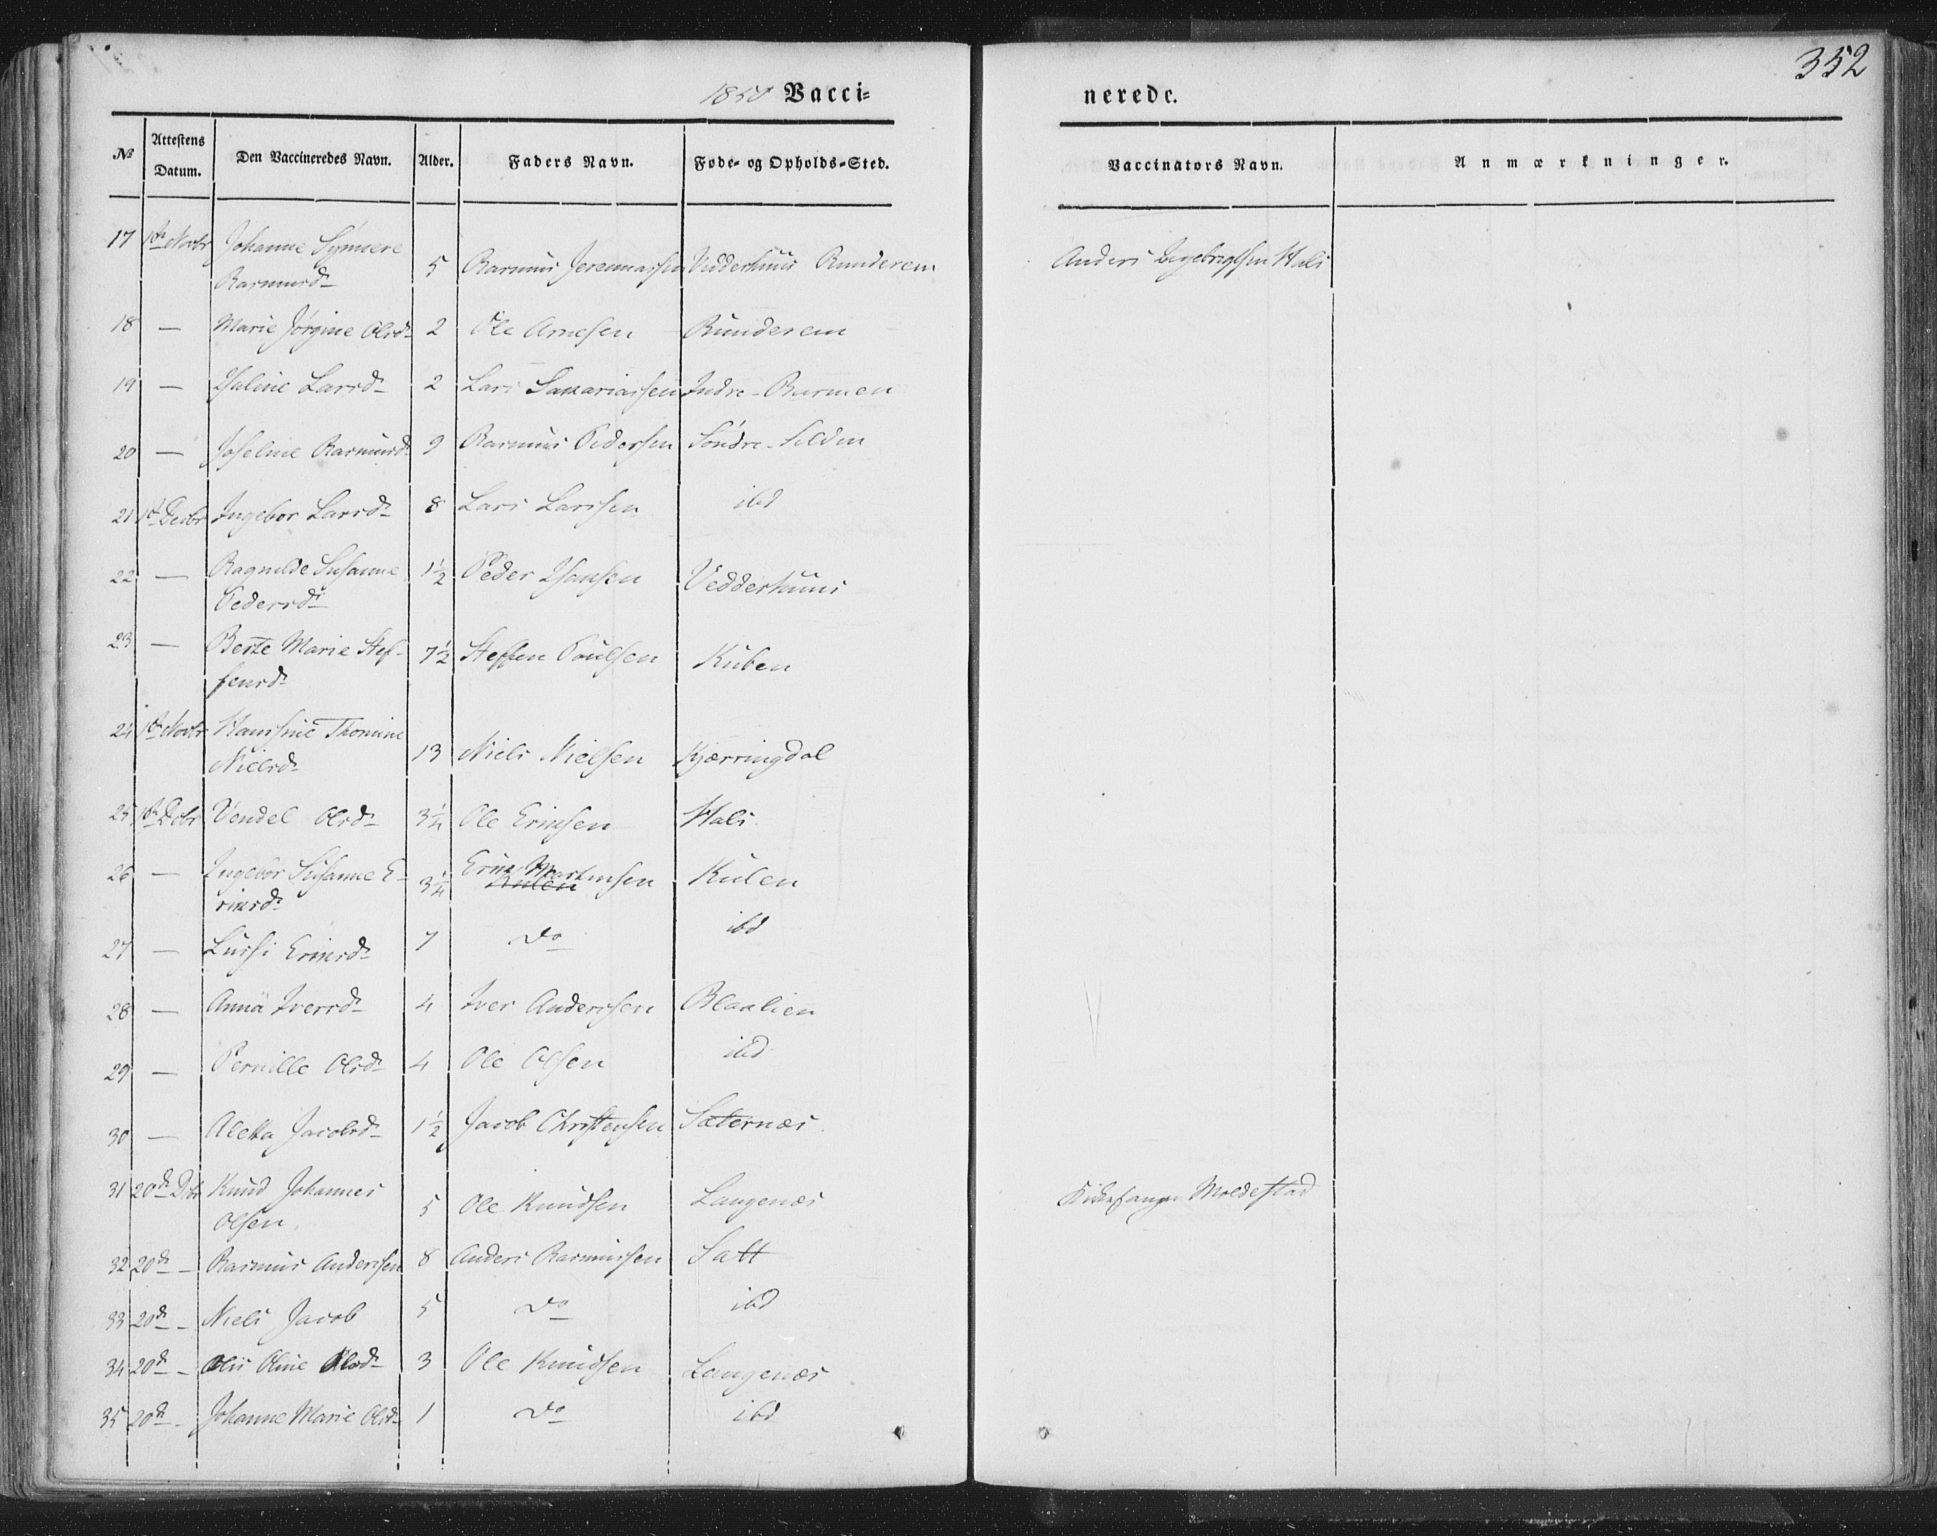 352
1850 Vacci= nerede.
№ Attestens Datum. Den Vaccineredes Navn. Alder. Faders Navn. Føde- og Opholds-Sted. Vaccinators Navn. Anmærkninger.
17 1ste Novbr Johanne Synneve
Rasmusd. 5 Rasmus Jeremiassen Vedderhuus Runderem Anders Ingebrigtsen Hals
18 — Marie Jørgine Olsd. 2 Ole Arnesen Runderem
19 — Haline Larsd. 2 Lars Sakariassen Indre-Barmen
20 — Joseline Rasmusd. 9 Rasmus Pedersen Söndre-Silden
21 1ste Decbr Ingebor Larsd. 8 Lars Larssen ibd
22 — Ragnilde Susanne
Pedersd. 1½ Peder Hansen Vedderhuus
23 — Berte Marie Stef-
fensd. 7½ Steffen Poulsen Kuben
24 1ste Novbr Hansine Thomine
Nielsd. 13 Niels Nielsen Kjærringdal
25 1ste Decbr Vendel Olsd. 3¼ Ole Ericksen Hals
26 — Ingebor Susanne E-
ricksd. 3¼ Erick Martinsen Kulen
27 — Lussi Ericksd. 7 do ibd
28 — Anna Iversd. 4 Iver Anderssen Blaalien
29 — Pernille Olsd. 4 Ole Olsen ibd
30 — Aletta Jacobsd. 1½ Jacob Christensen Sæternæs
31 20de Dcbr Knud Johannes
Olsen. 5 Ole Knudsen Langenæs Kirkesanger Moldestad
32 20de — Rasmus Anderssen 8 Anders Rasmussen Satt
33 20de — Niels Jacob 5 do ibd
34 20de — Oline Olsd. 3 Ole Knudsen Langenæs
35 20de — Johanne Marie Olsd. 1 do ibd